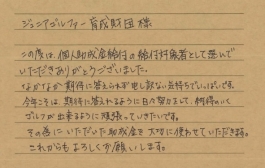 ジュニアゴルファー育成財団様
この度は、個人助成金給付の給付対象者として選んで
いただきありがとうございました。
なかなか期待に答えられず申し訳ない気持ちでいっぱいです。
今年こそは、期待に答えれるように日々努力をして、納得のいく
ゴルフが出来るように頑張っていきたいです。
その為にいただいた助成金を大切に使わせていただきます。
これからもよろしくお願いします。